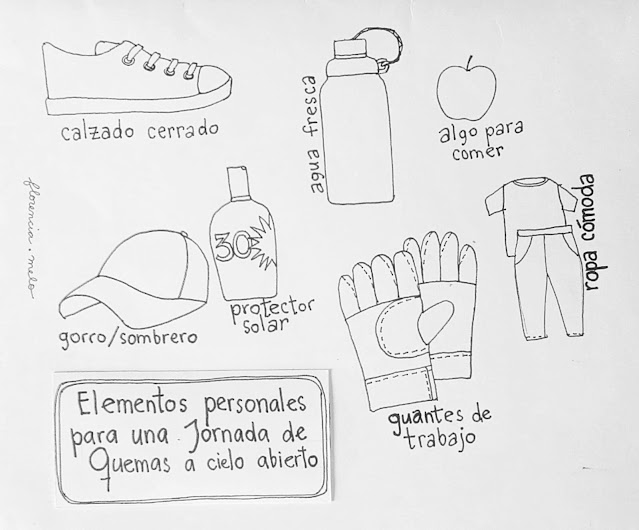 calzado cerrado
agua fresca
algo para
comer
ropa cómoda
florencia.melo
30
gorro/sombrero
protector
solar
guantes de
trabajo
Elementos personales
para una Jornada de
Quemas a cielo abierto